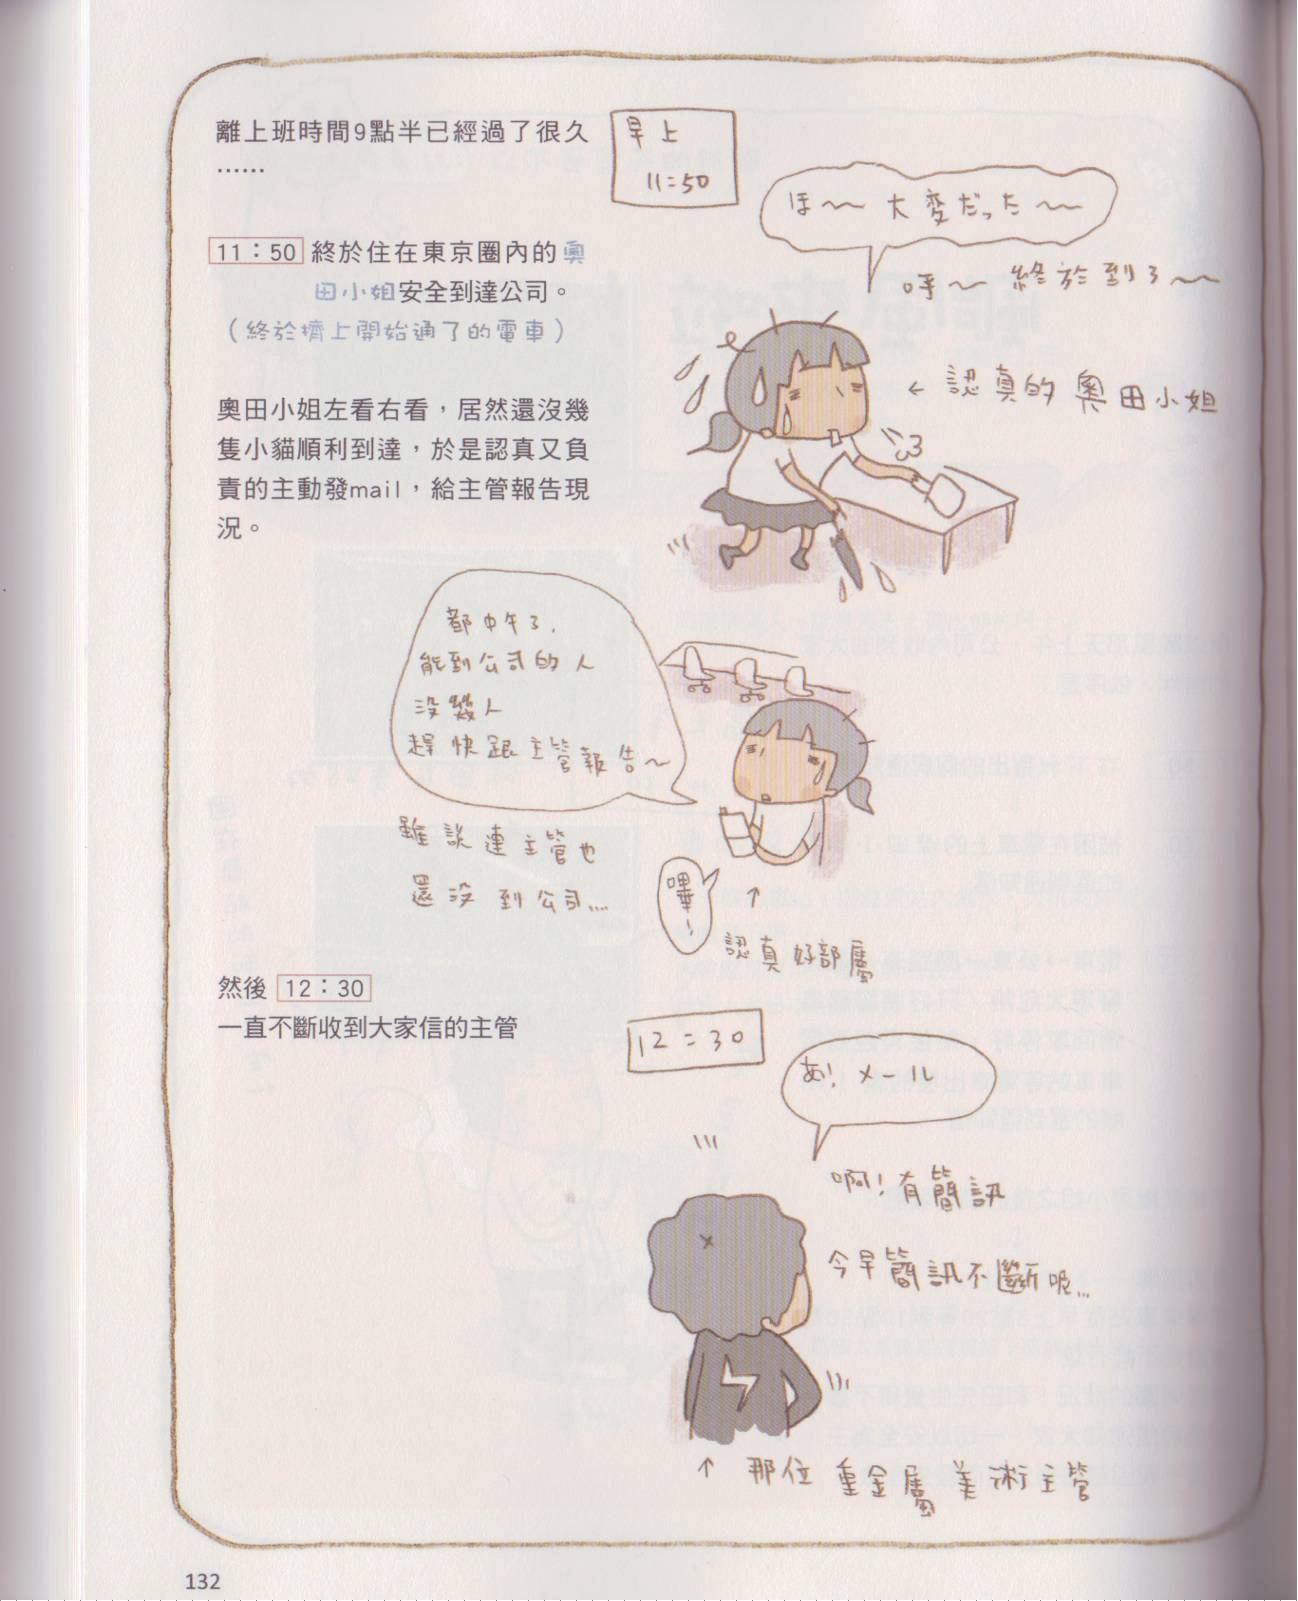 離上班時間9點半已經過了很久
……
早上
11:50
ほ～～大変だった～
呼～終於到了～
11：50 終於住在東京圈內的奧
田小姐安全到達公司。
（終於擠上開始通了的電車）
← 認真的 奧田小姐
奧田小姐左看右看，居然還沒幾
隻小貓順利到達，於是認真又負
責的主動發mail，給主管報告現
況。
都中午了，
能到公司的人
沒幾人
趕快跟主管報告～
雖說連主管也
還沒到公司...
嗶！
↑
認真好部屬
然後 12：30
一直不斷收到大家信的主管
12:30
あ！メール
啊！有簡訊
今早簡訊不斷呢...
↑ 那位 重金屬 美術主管
132